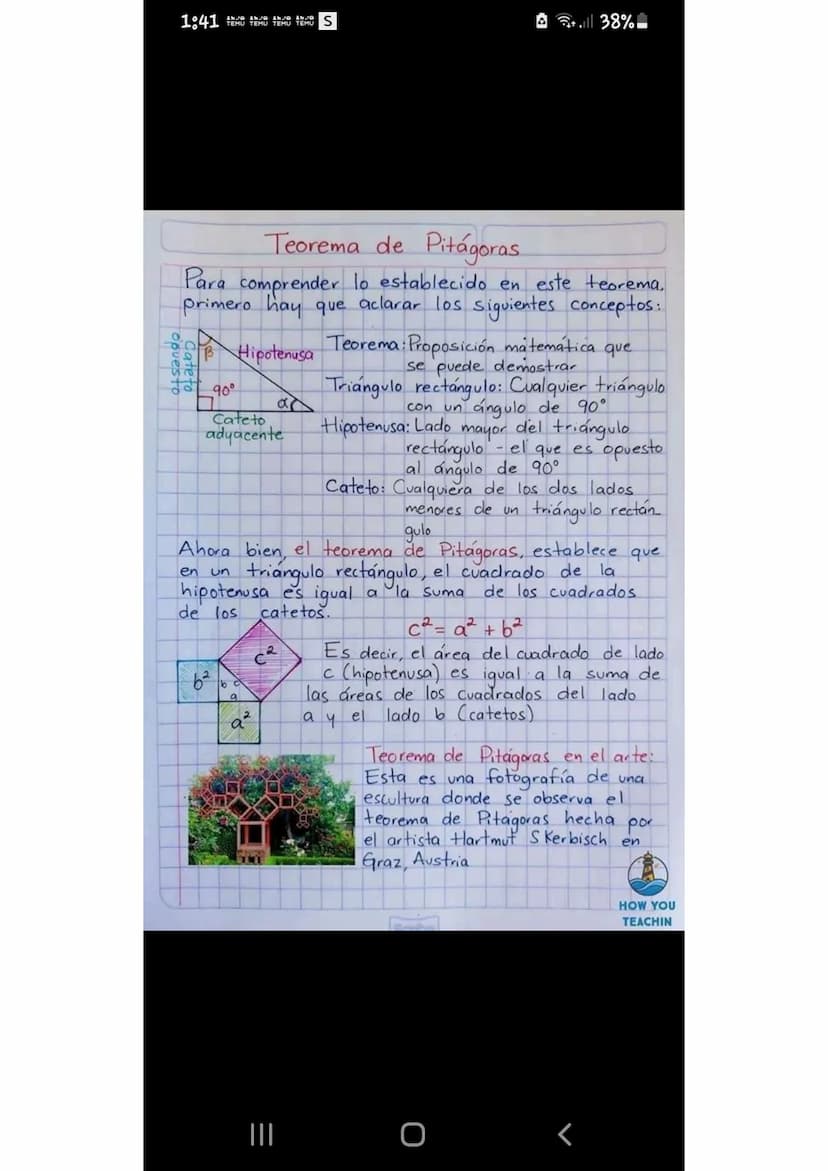 1:41 TEMU TEMU TEMU TEMU S 38%
Teorema de Pitágoras
Para comprender lo establecido en este teorema,
primero hay que aclarar los siguientes conceptos:
Cateto
opuesto
β
Hipotenusa
90°
α
Cateto
adyacente
Teorema: Proposición matemática que
se puede demostrar
Triángulo rectángulo: Cualquier triángulo
con un ángulo de 90°
Hipotenusa: Lado mayor del triángulo
rectángulo - el que es opuesto
al ángulo de 90°
Cateto: Cualquiera de los dos lados
menores de un triángulo rectán
gulo
Ahora bien, el teorema de Pitágoras, establece que
en un triángulo rectángulo, el cuadrado de la
hipotenusa es igual a la suma de los cuadrados
de los catetos.
c² = a² + b²
c²
b²
b c
a
a²
Es decir, el área del cuadrado de lado
c (hipotenusa) es igual a la suma de
las áreas de los cuadrados del lado
a y el lado b (catetos)
Teorema de Pitágoras en el arte:
Esta es una fotografía de una
escultura donde se observa el
teorema de Pitágoras hecha por
el artista Hartmut Skerbisch en
Graz, Austria
HOW YOU
TEACHIN